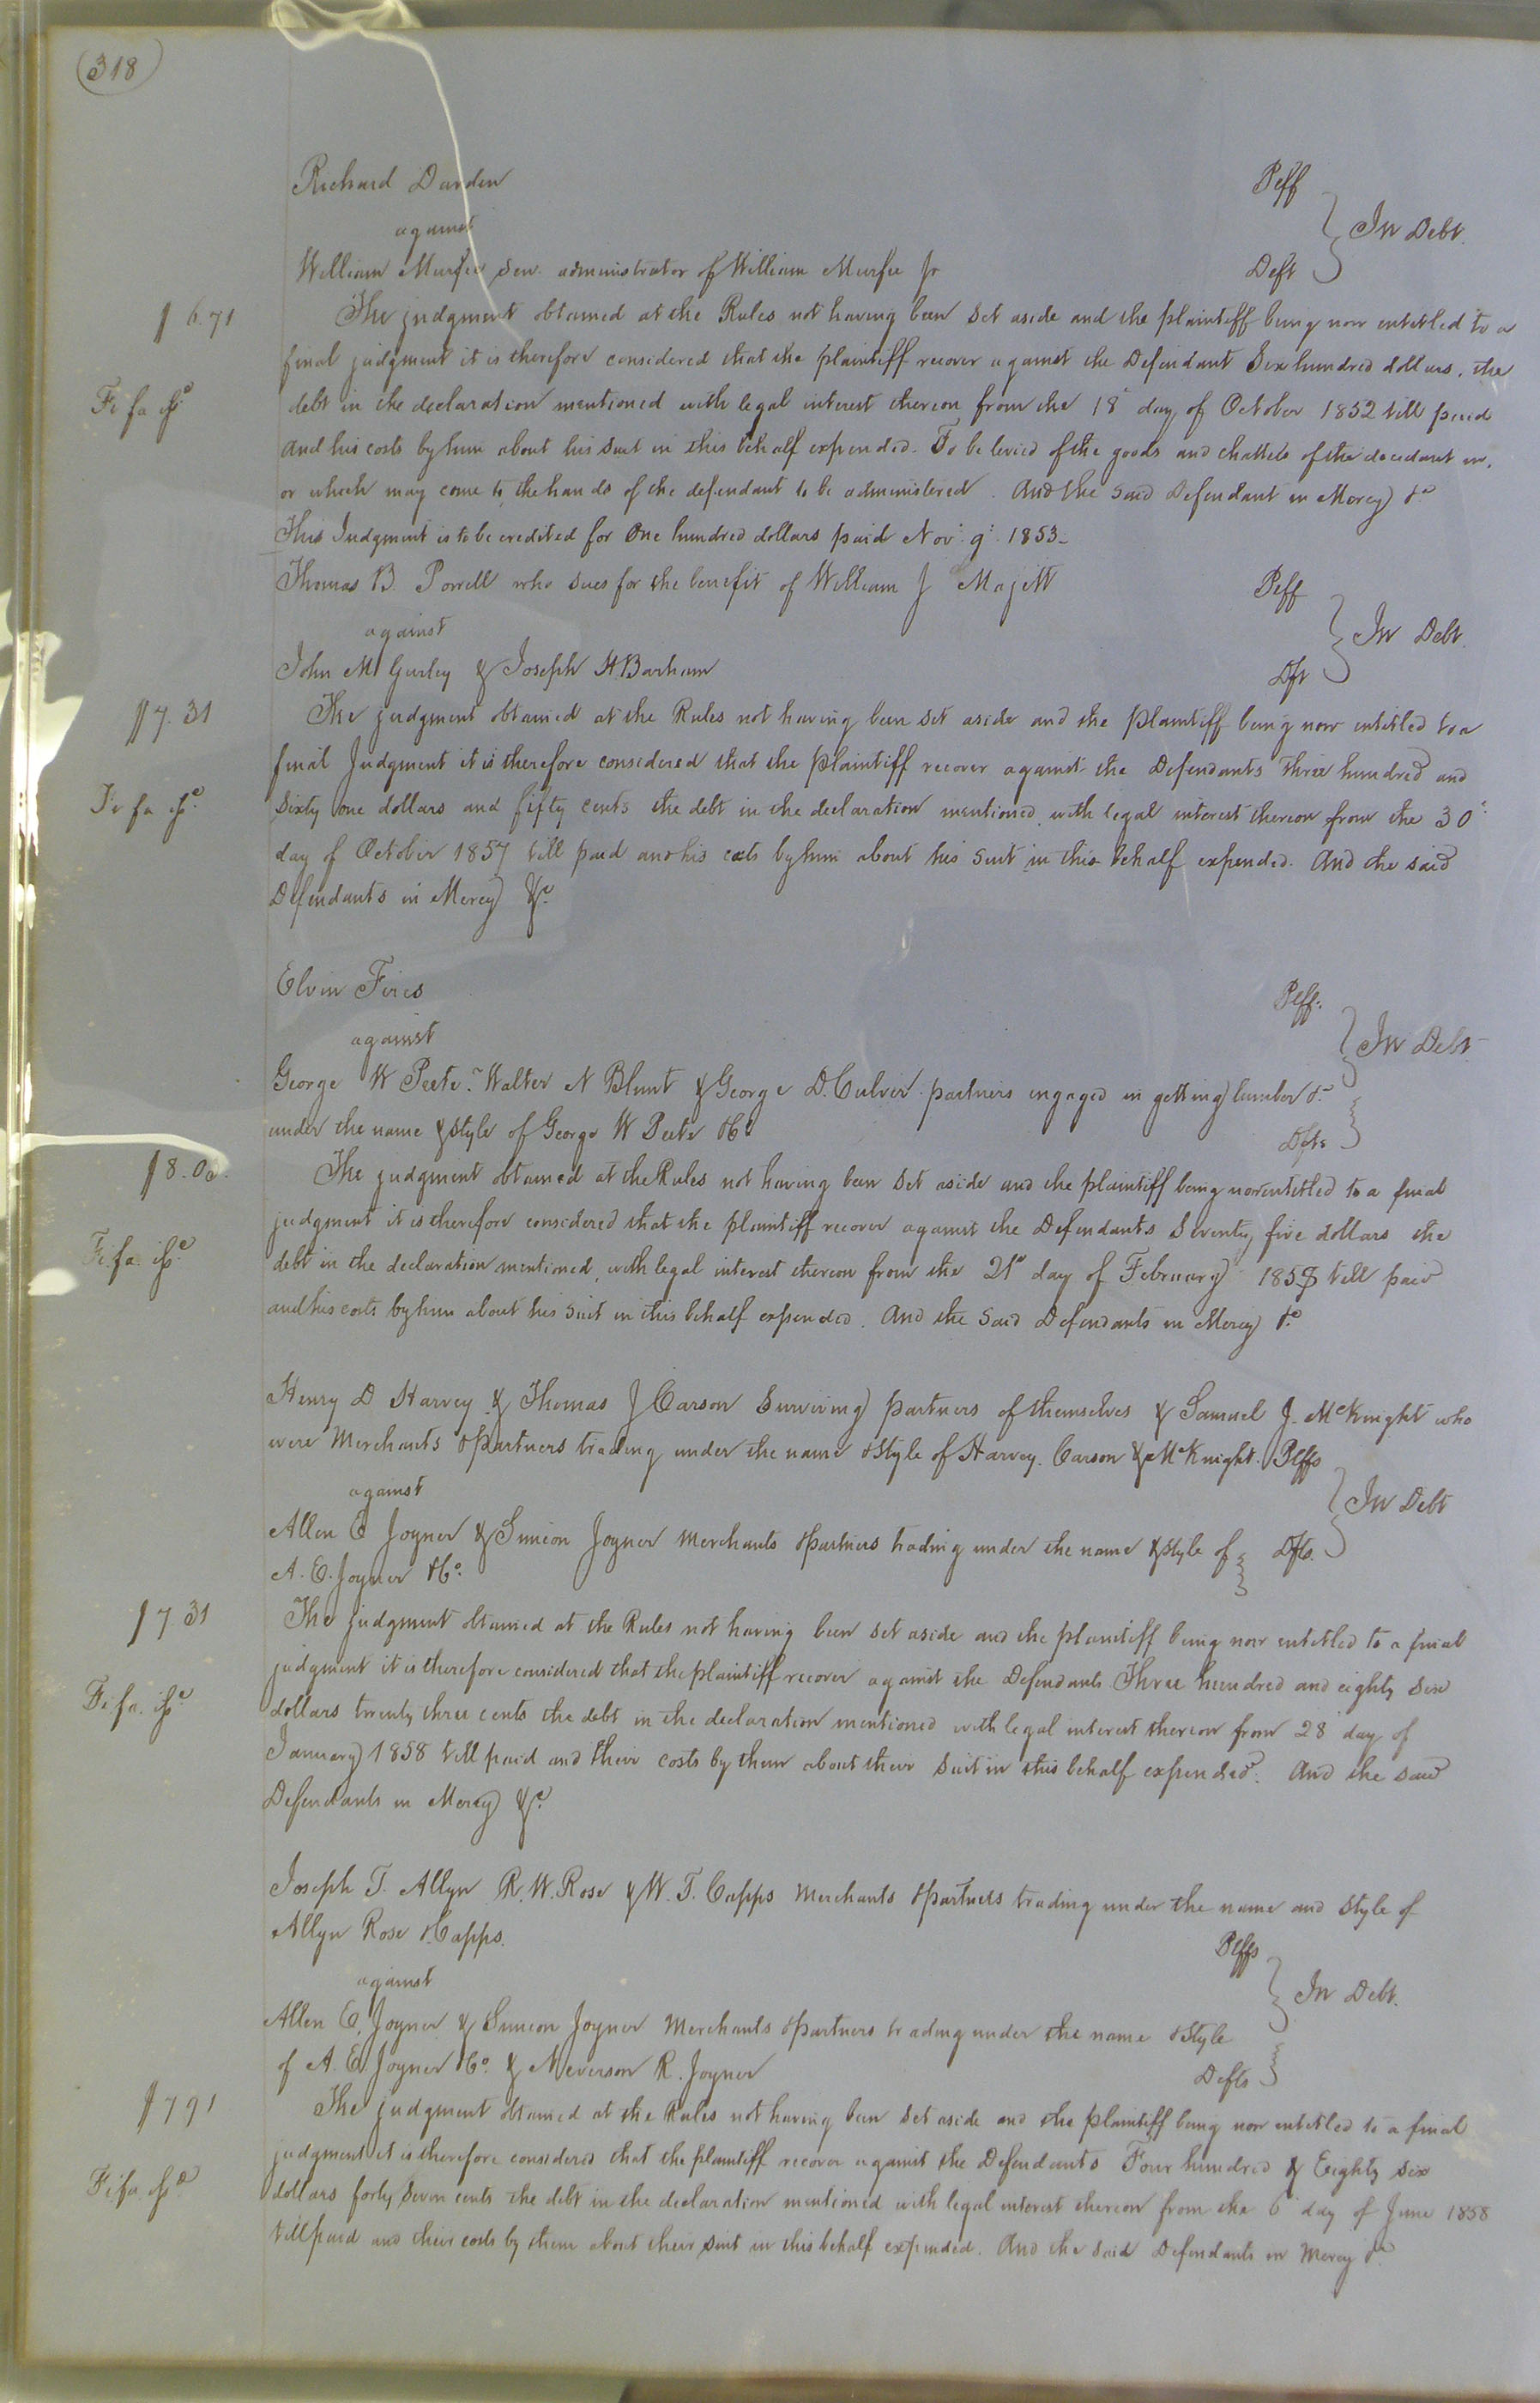 318
Richard Darden Plff
against In Debt.
William Murfee Sen. administrator of William Murfee Jr Deft
$ 6.71 The judgment obtained at the Rules not having been set aside and the plaintiff being now entitled to a
final judgment it is therefore considered that the plaintiff recover against the Defendant Six hundred dollars, the
Fi fa debt in the declaration mentioned with legal interest thereon from the 18 day of October 1852 till paid
and his costs by him about his suit in this behalf expended. To be levied of the goods and chattels of the decedant in,
or which may come to the hands of the defendant to be administered. And the said Defendant in Mercy &c
This Judgment is to be credited for One hundred dollars paid Nov: 9: 1853
Thomas B. Porrell who sues for the benefit of William J Majett Plff
against In Debt.
John M Gurley & Joseph H. Barham Dft
$7.31 The judgment obtained at the Rules not having been set aside and the plaintiff being now entitled to a
final Judgment it is therefore considered that the plaintiff recover against the Defendants Three hundred and
Fi fa Sixty one dollars and fifty cents the debt in the declaration mentioned, with legal interest thereon from the 30
day of October 1857 till paid and his costs by him about his suit in this behalf expended. And the said
Defendants in Mercy &c.
Elvin Plff.
against In Debt
George W Peete. Walter N Blunt & George D. Culver partners engaged in getting lumber &c
under the name & style of George W Peete & Co Defts
$8.00. The judgment obtained at the Rules not having been set aside and the plaintiff being now entitled to a final
judgment it is therefore considered that the plaintiff recover against the Defendants Seventy five dollars the
Fi. fa. debt in the declaration mentioned, with legal interest thereon from the 21st day of February 1858 till paid
and his costs by him about his suit in this behalf expended. And the said Defendants in Mercy &c
Henry D Harvey & Thomas J Carson Surviving partners of themselves & Samuel J. McKnight who
were Merchants & partners trading under the name & style of Harvey. Carson & McKnight. Plffs
against In Debt
Allen E Joyner & Simeon Joyner Merchants & partners trading under the name & style of Dfts.
A. E. Joyner & Co.
$7 31 The judgment obtained at the Rules not having been set aside and the plaintiff being now entitled to a final
judgment it is therefore considered that the plaintiff recover against the Defendants Three hundred and eighty six
Fi. fa. dollars twenty three cents the debt in the declaration mentioned with legal interest thereon from 28 day of
January 1858 till paid and their costs by them about their suit in this behalf expended. And the said
Defendants in Mercy &c.
Joseph T. Allyn R. W. Rose & W. T. Capps Merchants & partners trading under the name and style of
Allyn Rose & Capps. Plffs
against In Debt.
Allen E. Joyner & Simeon Joyner Merchants & partners trading under the name & style
of A. E. Joyner & Co. & Neverson R. Joyner Defts
$7 91 The judgment obtained at the Rules not having been set aside and the plaintiff being now entitled to a final
judgment it is therefore considered that the plaintiff recover against the Defendants Four hundred & Eighty six
Fi. fa. dollars forty seven cents the debt in the declaration mentioned with legal interest thereon from the 6 day of June 1858
till paid and their costs by them about their suit in this behalf expended. And the said Defendants in Mercy &c.